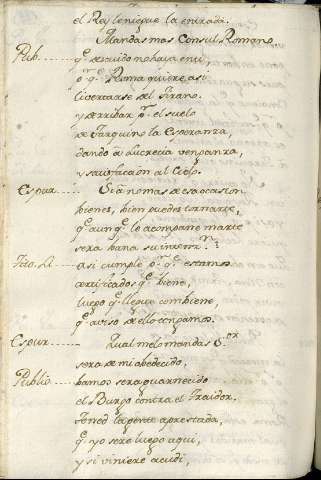 el Rey le niegue la entrada.
Mandas mas Consul Romano
Pub. ..... q.e descuido no haya en mi,
o q.e Roma quiere asi
livertarse del Tirano
y derribar p.r el suelo
de Tarquino la Esperanza,
dando a Lucrecia venganza,
y satisfacion al Cielo.
Espur. ..... Si a no mas de esa ocasion
bienes, bien puedes tornarte,
q.e aunq.e lo acompañe marte
sera bana su intenc.n
Tito. Li ..... asi cumple p.r q.e estamos
certificados q.e biene,
luego q.e llegue combiene,
q.e aviso de ello tengamos.
Espur. ..... Qual me lo mandas S.or
sera de mi obedecido,
Publio ..... bamos sera guarnecido
el Burgo contra el Traidor.
Tened la gente aprestada,
q.e yo sere luego aqui,
y si viniere acudi,